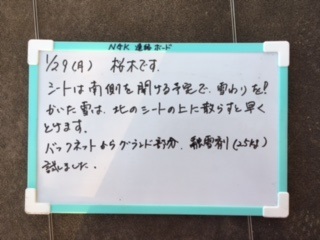 NGK 連絡ボード
1/29(月) 柗木です.
シートは南側を開ける予定で、雪わりを!
かいた雪は、北のシートの上に散らすと早く
とけます.
バックネットよりグランド部分、融雪剤(25kg)
しました.